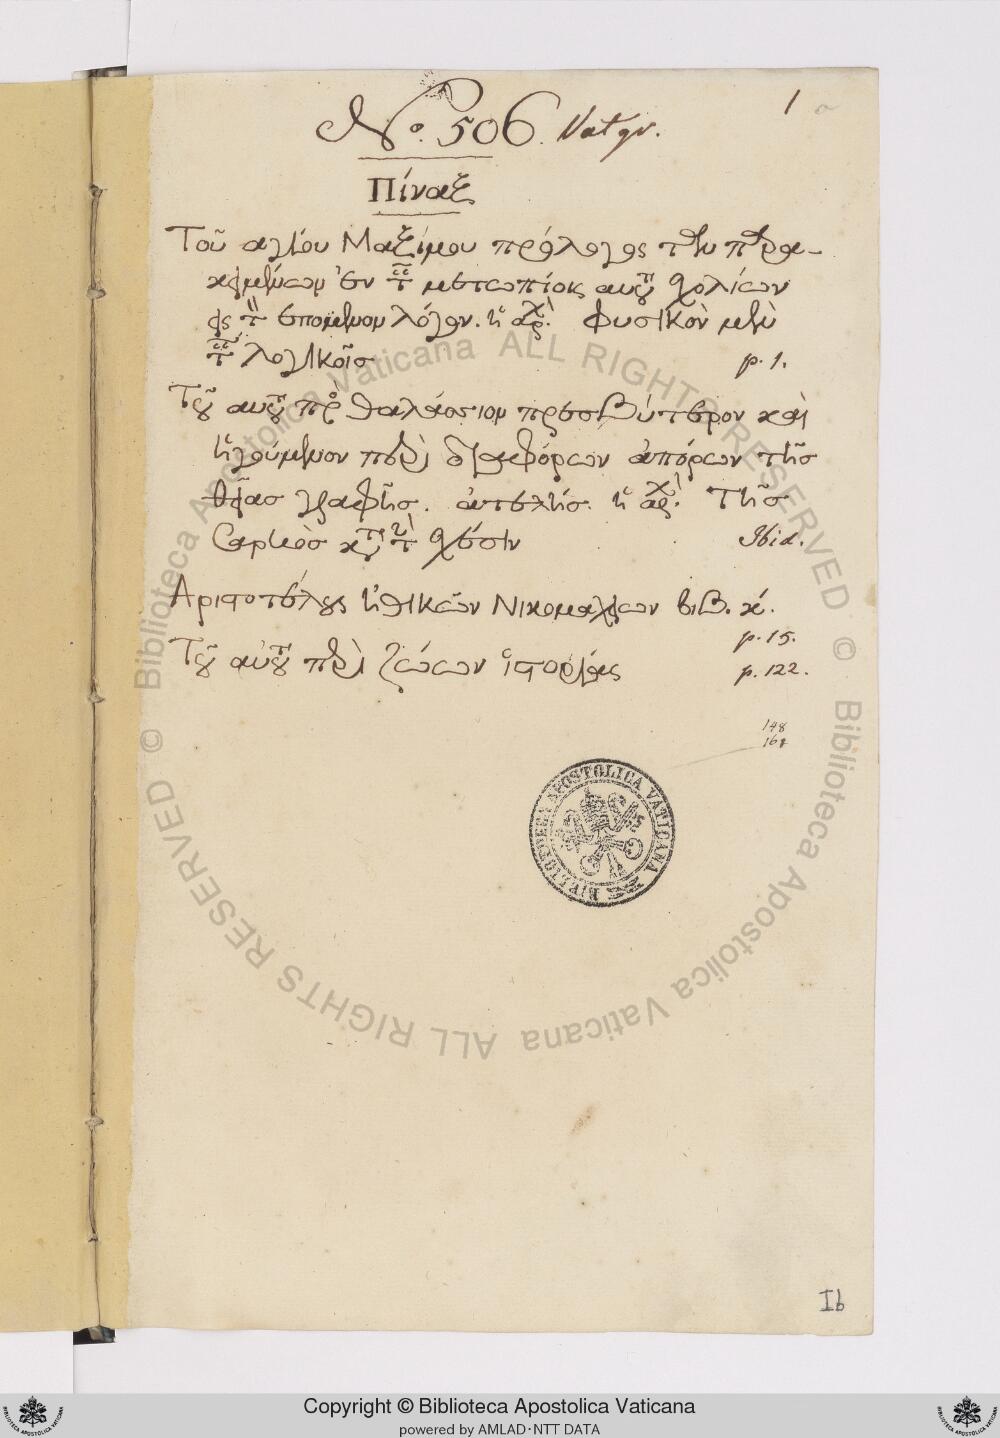 1
No. 506. Vat gr.
Πίναξ
Τοῦ αγίου Μαξίμου πρόλογος τῶν παρα-
κειμένων ἐν τοῖς μετωπίοις αυτοῦ σχολίων
εἰς τὸν επόμενον λόγον. ἡ ἀρχὴ. Φυσικὸν μὲν
τοῖς λογικοῖσ p. 1.
Τοῦ αυτοῦ πρὸς θαλάσσιον πρεσβύτερον καὶ
ἡγούμενον περὶ διαφόρων ἀπόρων τῆσ
θείασ γραφῆσ. ἀτελήσ. ἡ ἀρχὴ. τῆσ
Σαρκὸσ κατὰ τὴν σχέσιν Ibid.
Αριστοτέλους ἠθικῶν Νικομαχείων βιβ. κ.
p. 15.
Τοῦ αὐτοῦ περὶ ζώων ἱστορίας p. 122.
148
168
BIBLIOTECA APOSTOLICA VATICANA
Ib
© Biblioteca Apostolica Vaticana ALL RIGHTS RESERVED
© Biblioteca Apostolica Vaticana ALL RIGHTS RESERVED
Copyright © Biblioteca Apostolica Vaticana
powered by AMLAD·NTT DATA